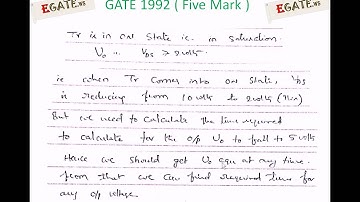 EGATE.WS
GATE 1992 ( Five Mark )
EGATE.WS
Tr is in on state i.e. in saturation
Vo VDS > 2 volts.
ie when Tr comes into on state, VDS
is reducing from 10 volts to 2 volts (min)
But we need to calculate the time required
to calculate for the o/p Vo to fall to 5 volts
Hence we should get Vo equ at any time.
from that we can find required time for
any o/p voltage.